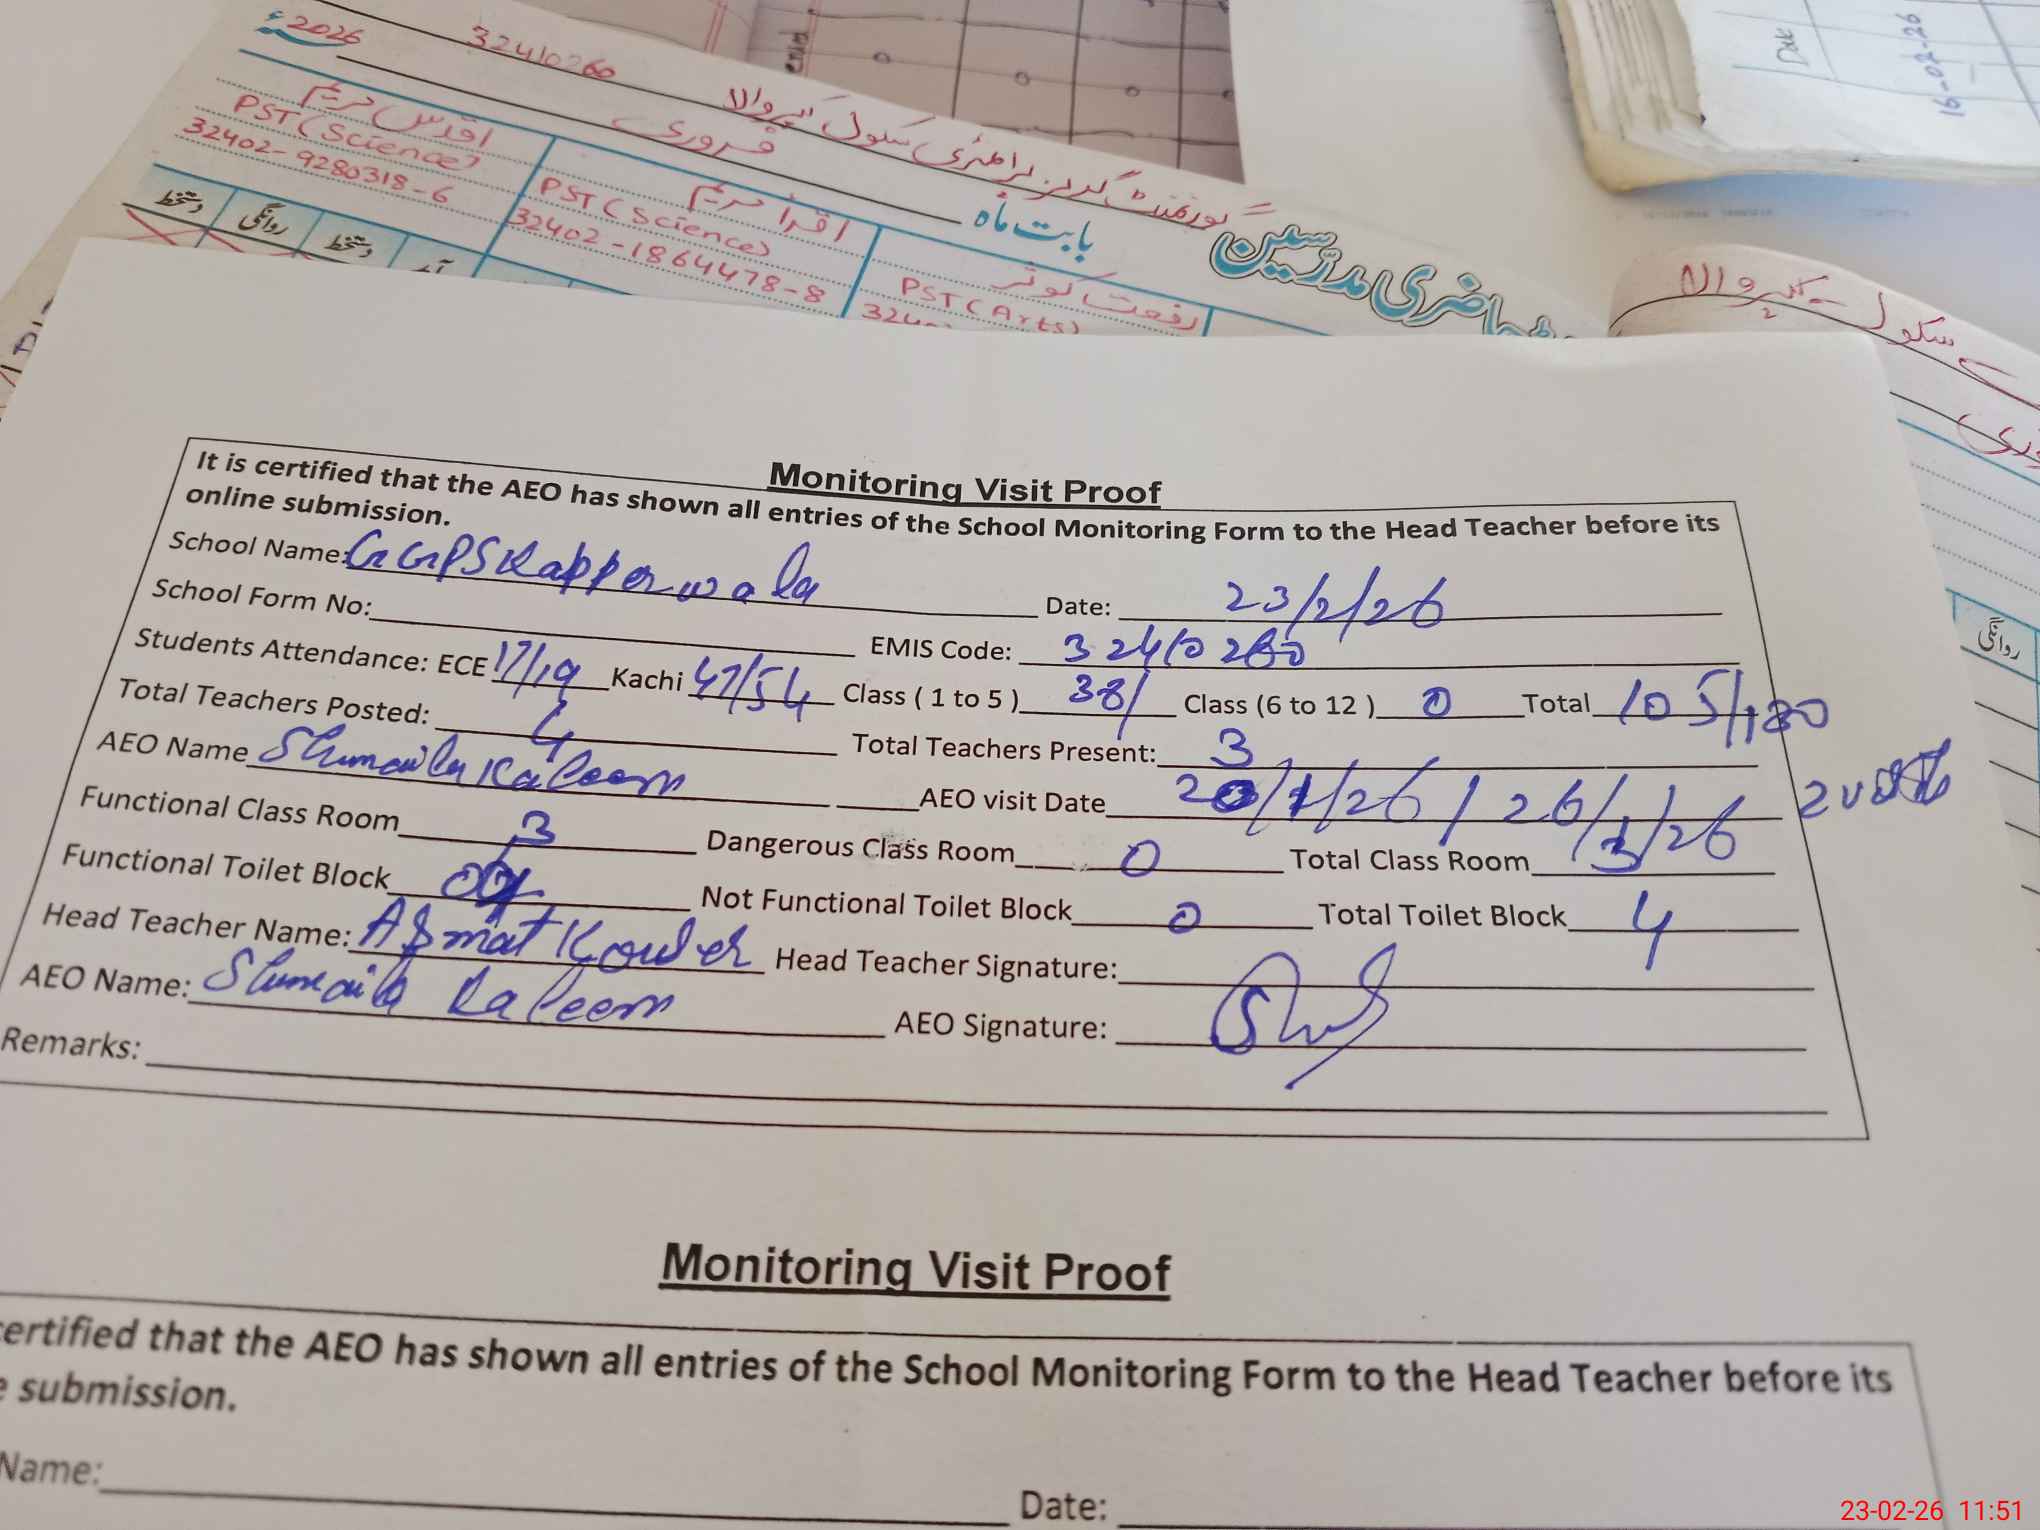 2026 32410260
گورنمنٹ گرلز پرائمری سکول کپر والا
فروری
بابت ماہ
حاضری مدرسین
اقدس مریم
PST (Science)
32402-9280318-6
اقرا مریم
PST (Science)
32402-1864478-8
رفعت کوثر
PST (Arts)
دستخط روانگی دستخط
Date
16-02-26
سکول کپر والا
روانگی
Monitoring Visit Proof
It is certified that the AEO has shown all entries of the School Monitoring Form to the Head Teacher before its
online submission.
School Name: GGPS Kapperwala Date: 23/2/26
School Form No: EMIS Code: 32410260
Students Attendance: ECE 17/19 Kachi 47/54 Class ( 1 to 5 ) 38/ Class (6 to 12 ) 0 Total 105/130
Total Teachers Posted: 4 Total Teachers Present: 3
AEO Name Shumaila Kaleem AEO visit Date 20/1/26 / 26/1/26 2 visits
Functional Class Room 3 Dangerous Class Room 0 Total Class Room 3
Functional Toilet Block Not Functional Toilet Block 0 Total Toilet Block 4
Head Teacher Name: Head Teacher Signature:
AEO Name: Shumaila Kaleem AEO Signature:
Remarks:
Monitoring Visit Proof
certified that the AEO has shown all entries of the School Monitoring Form to the Head Teacher before its
submission.
Name: Date:
23-02-26 11:51